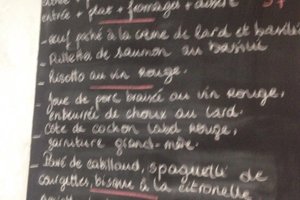 entrée + plat + fromages + dessert 37
- œuf poché à la crème de lard et basilic
- Rillettes de saumon au basilic
- Risotto au vin rouge.
- Joue de porc braisée au vin rouge,
embeurrée de choux au lard.
- Côte de cochon label rouge,
garniture grand-mère.
- Pavé de cabillaud, spaguetti de
courgettes, bisque à la citronelle